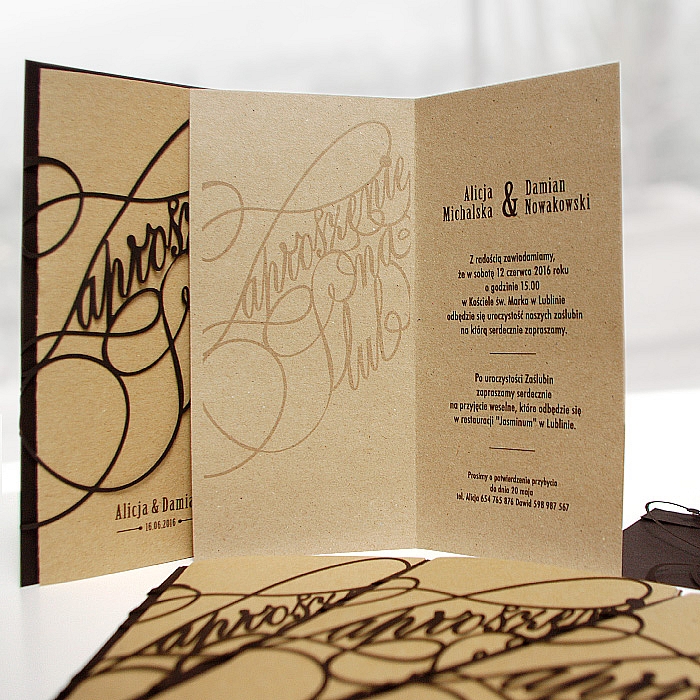 aprosz
Alicja & Damia
16.06.2016
Zaproszenie
na
ślub
Alicja & Damian
Michalska Nowakowski
Z radością zawiadamiamy,
że w sobotę 12 czerwca 2016 roku
o godzinie 15.00
w Kościele św. Marka w Lublinie
odbędzie się uroczystość naszych zaślubin
na którą serdecznie zapraszamy.
Po uroczystości Zaślubin
zapraszamy serdecznie
na przyjęcie weselne, które odbędzie się
w restauracji "Jasminum" w Lublinie.
Prosimy o potwierdzenie przybycia
do dnia 20 maja
tel. Alicja 654 765 876 Dawid 598 987 567
aproszenie